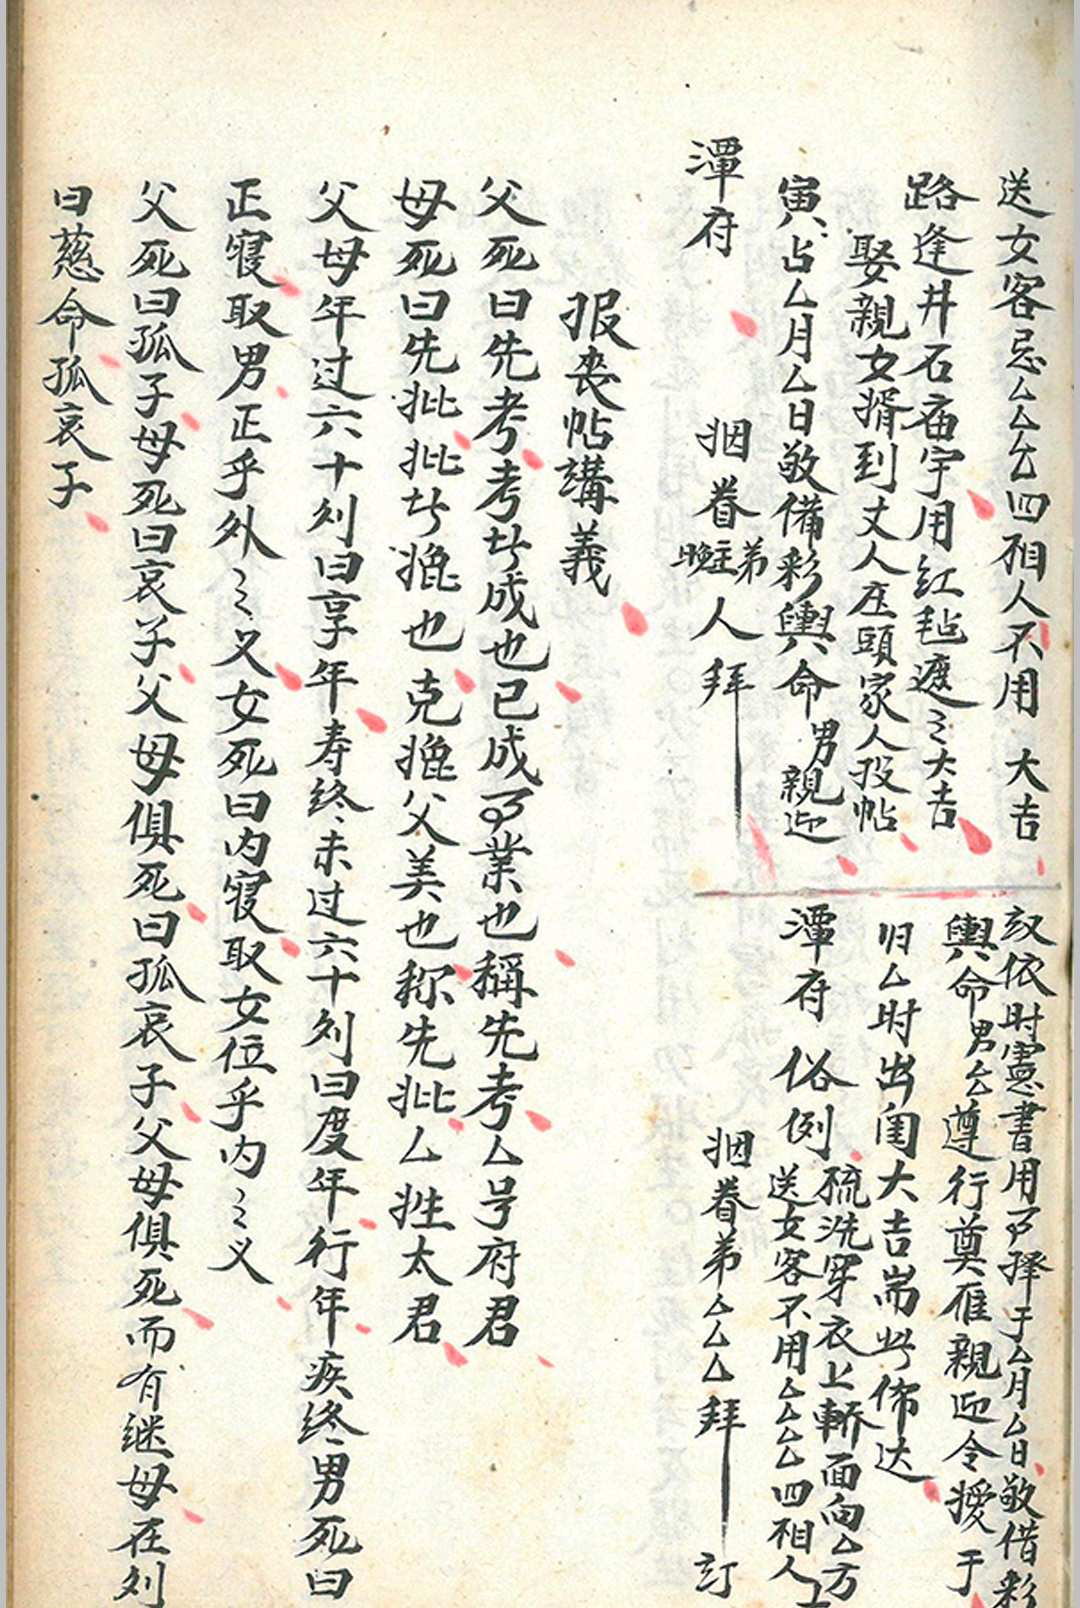 送女客忌厶厶厶四相人不用 大吉
路逢井石庙宇用红毡遮〻大吉
娶親女婿到丈人庄頭家人投帖
寅占厶月厶日敬備彩輿命男親迎
潭府
姻眷晚主弟人拜
欵依时憲書用择于厶月厶日敬借彩
輿命男厶遵行奠雁親迎令援于
归厶时出闺大吉耑此佈达
潭府 俗例 梳洗穿衣上轿面向厶方
送女客不用厶厶厶厶四相人
姻眷弟厶厶厶拜 訂
报丧帖講義
父死曰先考考者成也已成業也稱先考厶号府君
母死曰先妣妣者媲也克媲父美也称先妣厶姓太君
父母年过六十列曰享年寿终未过六十列曰度年行年疾终男死曰
正寝取男正乎外〻义女死曰内寝取女位乎内〻义
父死曰孤子母死曰哀子父母俱死曰孤哀子父母俱死而有继母在列
曰慈命孤哀子